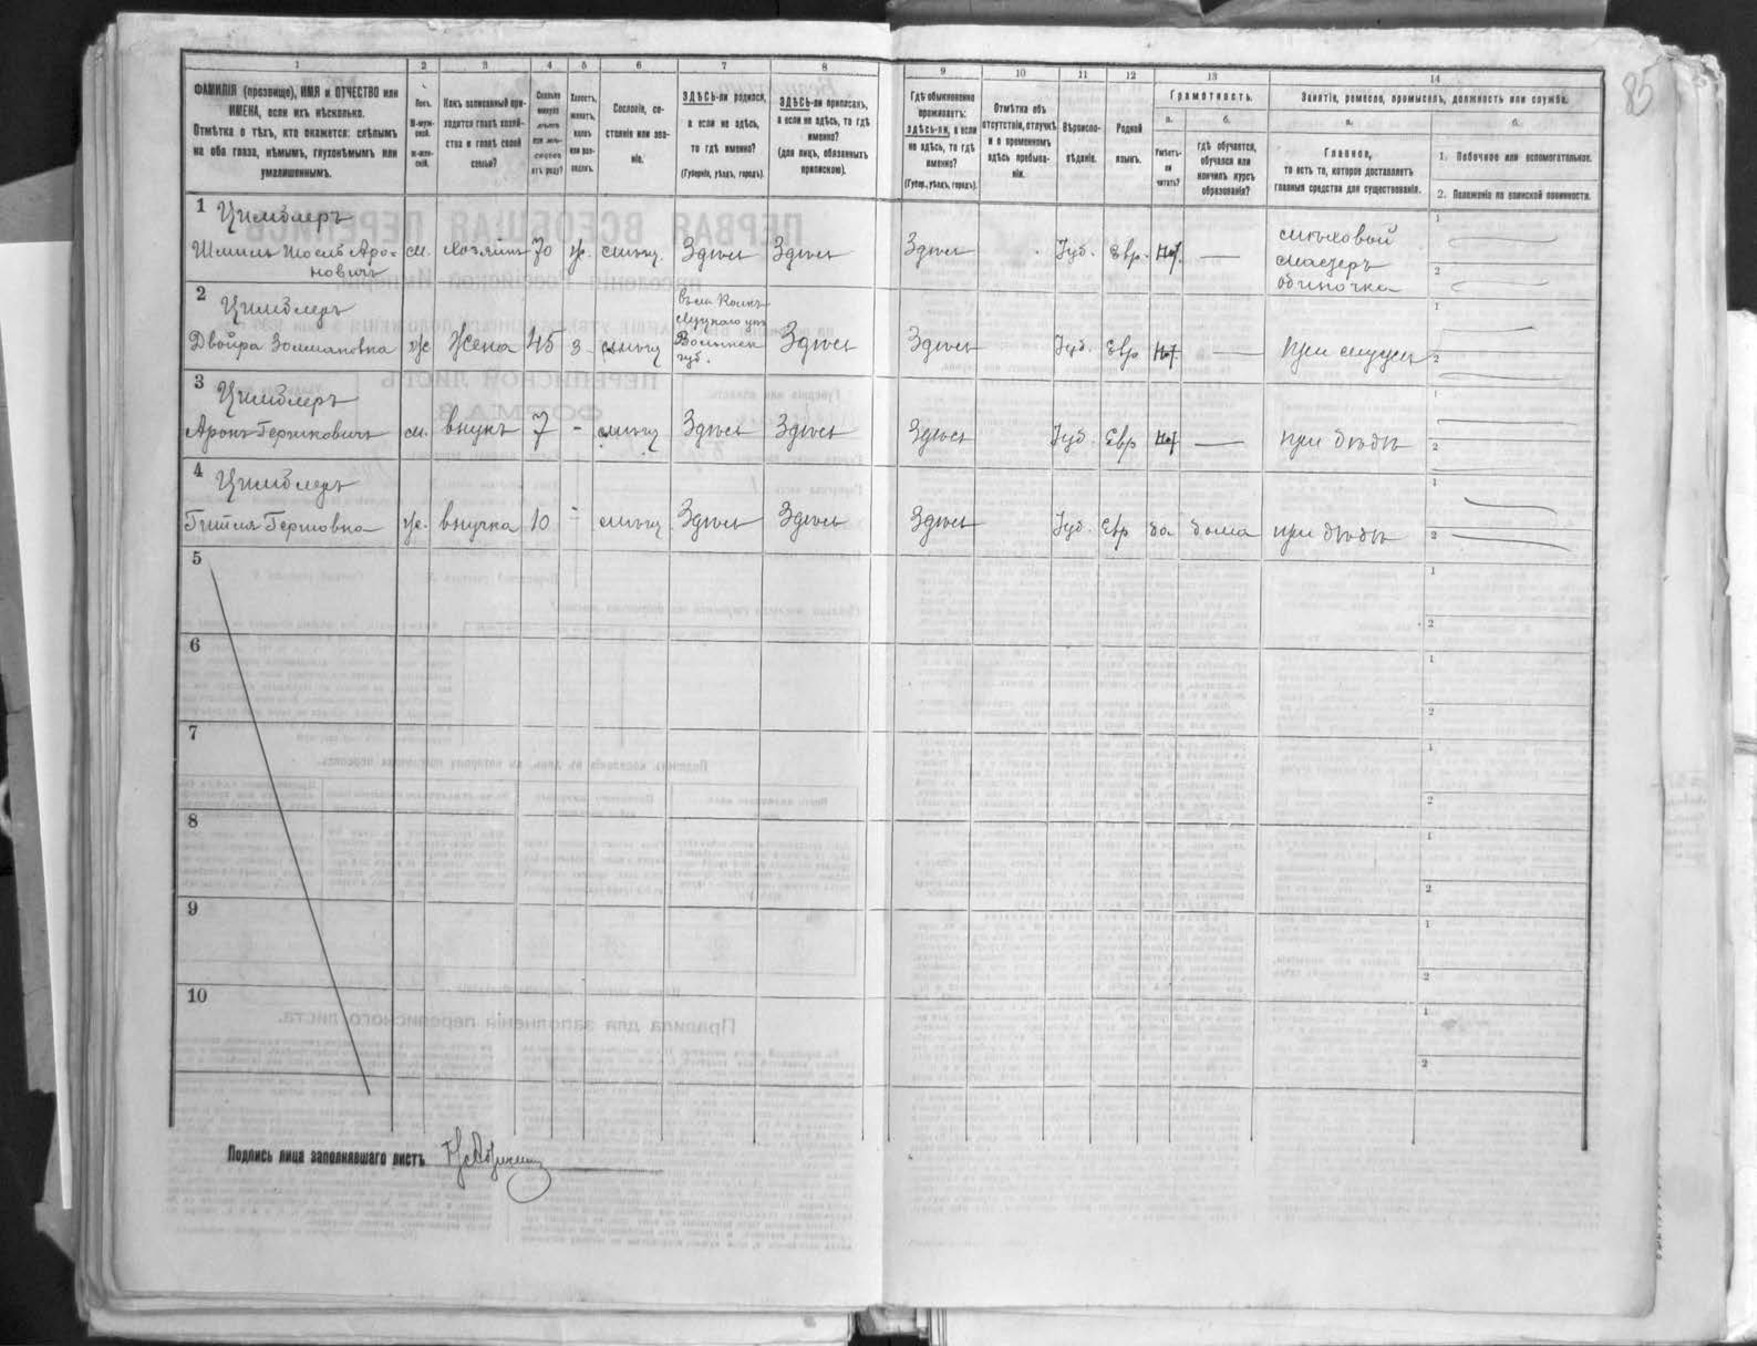 85
1 2 3 4 5 6 7 8 9 10 11 12 13 14
ФАМИЛІЯ (прозвище), ИМЯ и ОТЧЕСТВО или
ИМЕНА, если ихъ нѣсколько.
Отмѣтка о тѣхъ, кто окажется: слѣпымъ
на оба глаза, нѣмымъ, глухонѣмымъ или
умалишеннымъ.
Полъ.
М-муж-
ской.
ж-жен-
скій.
Какъ записанный при-
ходится главѣ хозяй-
ства и главѣ своей
семьи?
Сколько
минуло
лѣтъ
или мѣ-
сяцевъ
отъ роду?
Холостъ,
женатъ,
вдовъ
или раз-
веденъ.
Сословіе, со-
стояніе или зва-
ніе.
ЗДѢСЬ-ли родился,
а если не здѣсь,
то гдѣ именно?
(Губернія, уѣздъ, городъ).
ЗДѢСЬ-ли приписанъ,
а если не здѣсь, то гдѣ
именно?
(для лицъ, обязанныхъ
припискою).
Гдѣ обыкновенно
проживаетъ:
здѣсь-ли, а если
не здѣсь, то гдѣ
именно?
(Губер., уѣздъ, городъ).
Отмѣтка объ
отсутствіи, отлучкѣ
и о временномъ
здѣсь пребыва-
ніи.
Вѣроиспо-
вѣданіе.
Родной
языкъ.
Грамотность.
а.
Умѣетъ-
ли
читать?
б.
гдѣ обучается,
обучался или
кончилъ курсъ
образованія?
Занятіе, ремесло, промыселъ, должность или служба.
а.
Главное,
то есть то, которое доставляетъ
главныя средства для существованія.
б.
1. Побочное или вспомогательное.
2. Положеніе по воинской повинности.
1 Цимблеръ
Шмиль Іосль Аро-
новичъ
м. хозяинъ 70 ж. мѣщ. Здѣсь Здѣсь Здѣсь Іуд. Евр. нѣт. —
мастеръ
одиночка
1
2
2 Цимблеръ
Двойра Зольмановна ж жена 45 з. мѣщ
Луцкого
Волынск
губ.
Здѣсь Здѣсь Іуд. Евр нѣт — при мужѣ
1
2
3 Цимблеръ
Аронъ Гершковичъ м. внукъ 7 - мѣщ Здѣсь Здѣсь Здѣсь Іуд. Евр нѣт — при дѣдѣ
1
2
4 Цимблеръ
Гитля Гершовна ж. внучка 10 - мѣщ Здѣсь Здѣсь Здѣсь Іуд. Евр да дома при дѣдѣ
1
2
5
1
2
6
1
2
7
1
2
8
1
2
9
1
2
10
1
2
Подпись лица заполнявшаго листъ